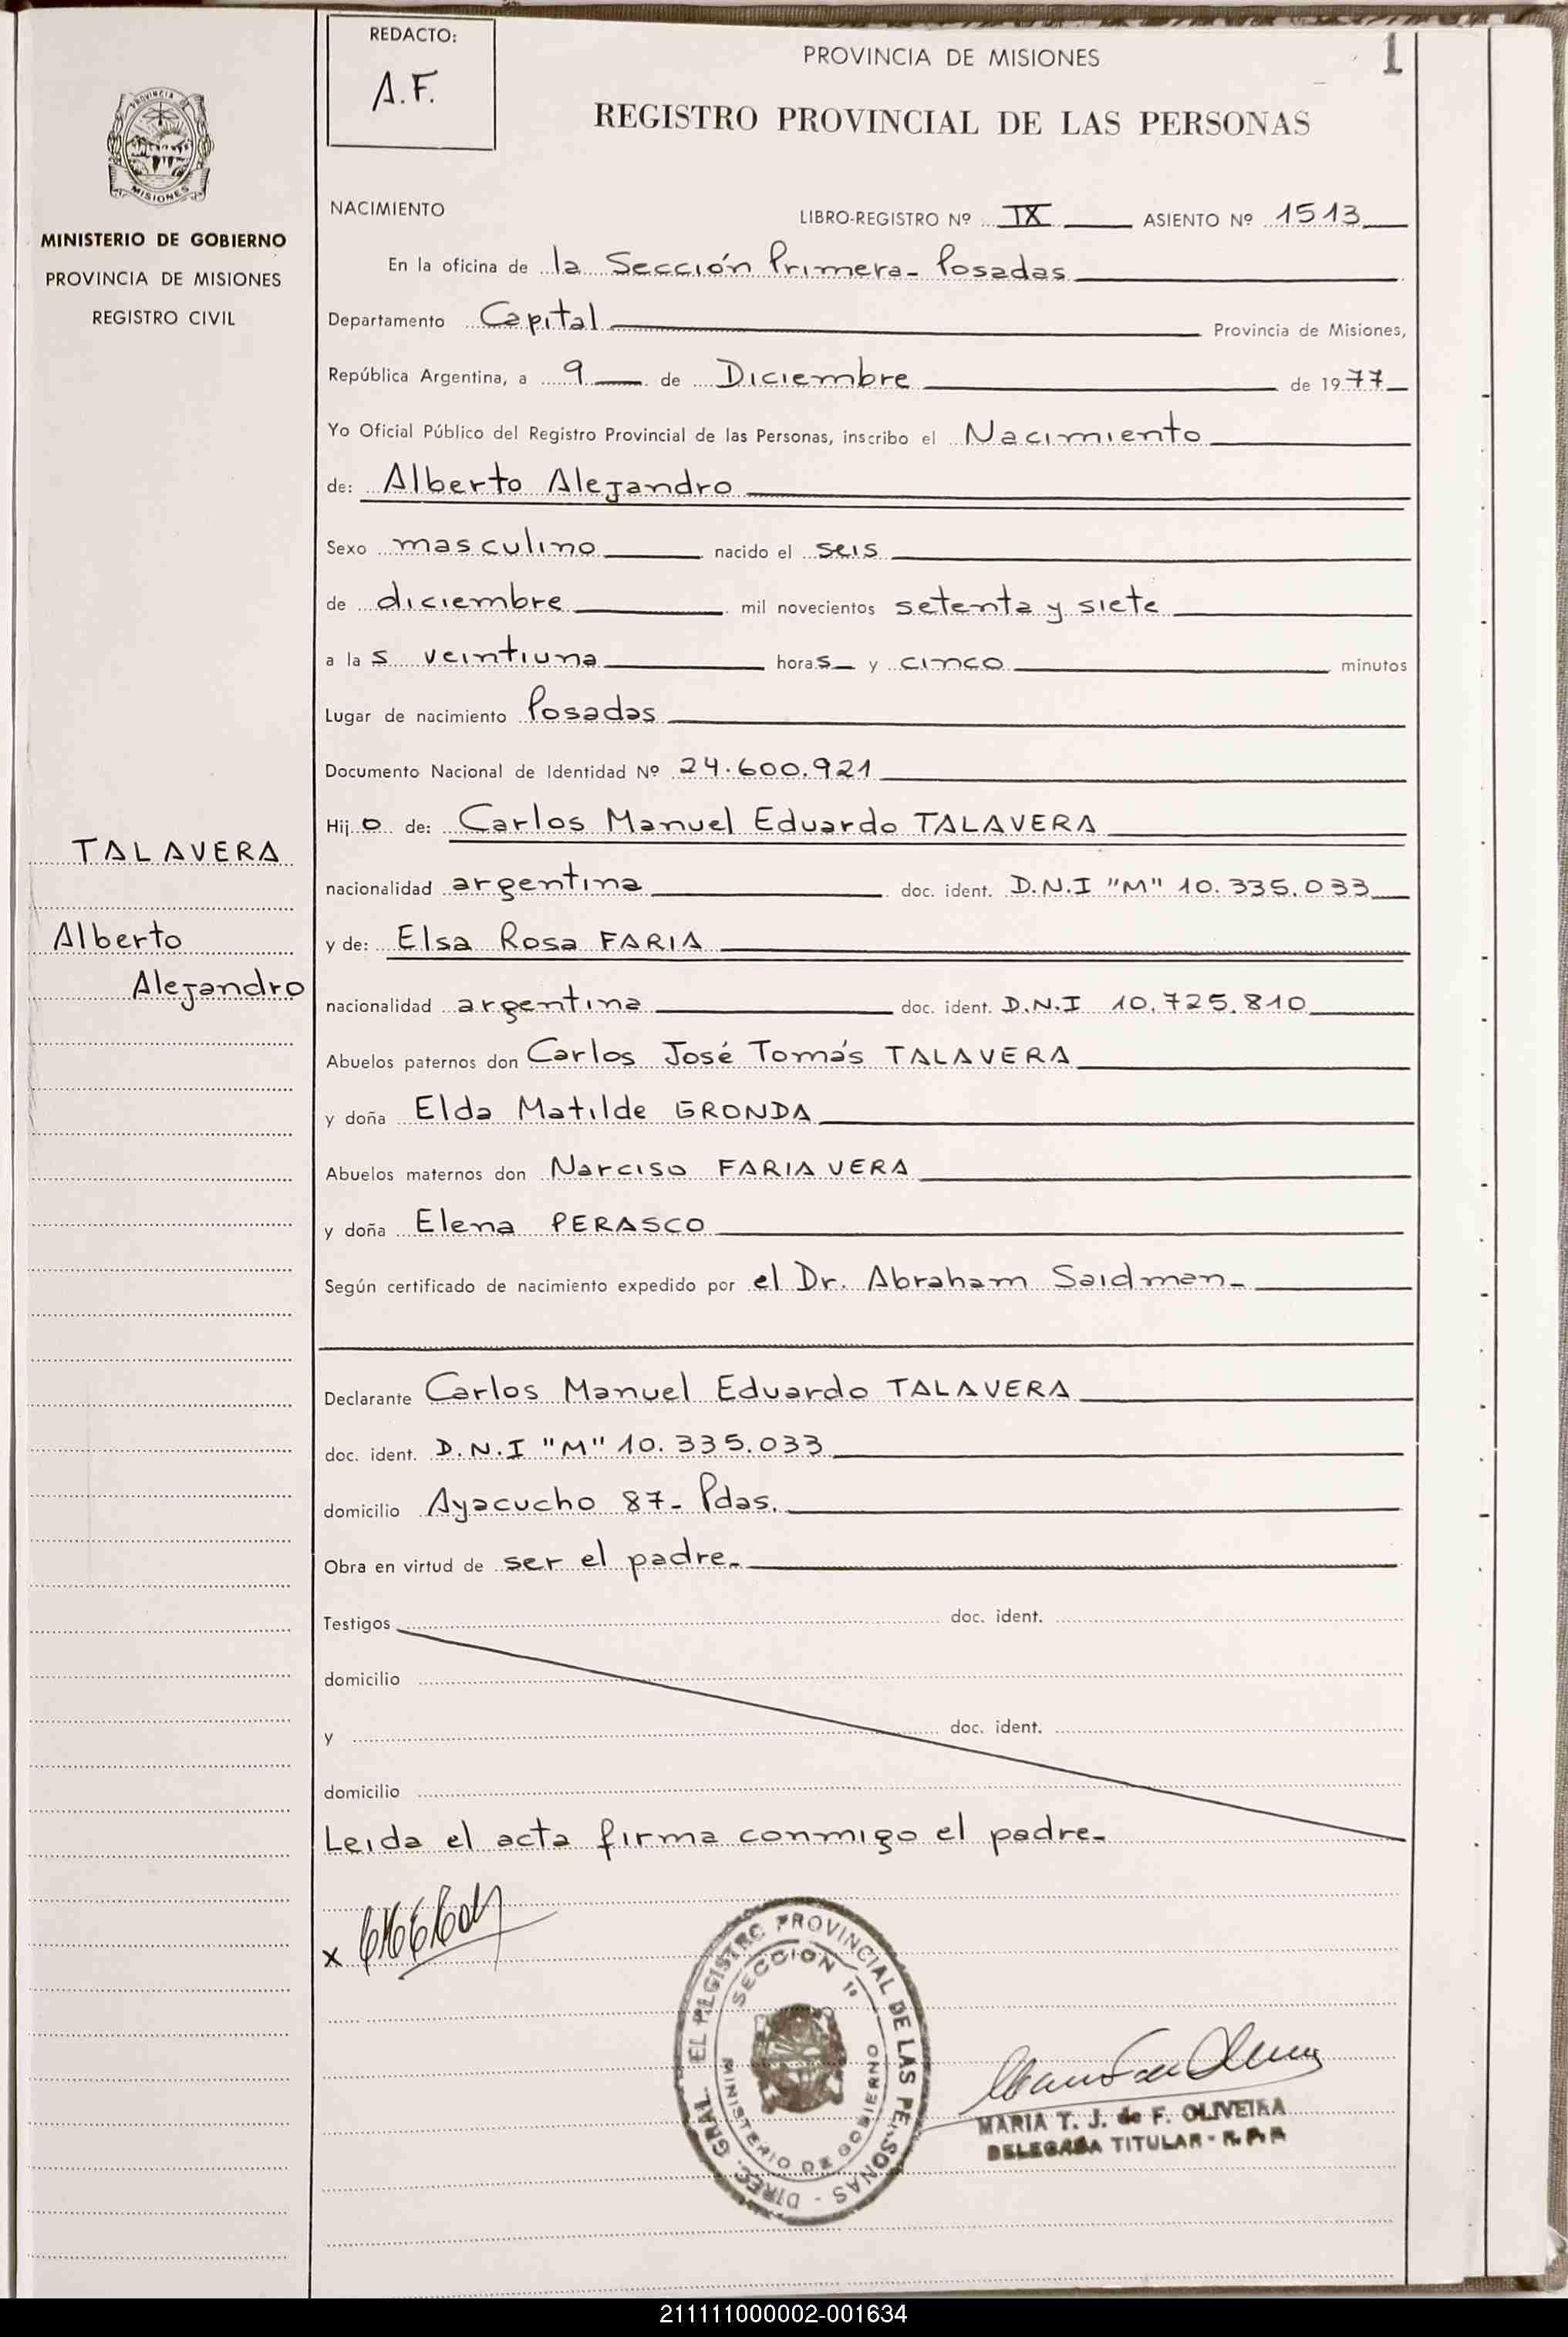 REDACTO:
A.F.
PROVINCIA DE MISIONES
1
REGISTRO PROVINCIAL DE LAS PERSONAS
MISIONES
MINISTERIO DE GOBIERNO
PROVINCIA DE MISIONES
REGISTRO CIVIL
NACIMIENTO
LIBRO-REGISTRO Nº IX ASIENTO Nº 1513
En la oficina de la Sección Primera- Posadas
Departamento Capital Provincia de Misiones,
República Argentina, a 9 de Diciembre de 1977
Yo Oficial Público del Registro Provincial de las Personas, inscribo el Nacimiento
de: Alberto Alejandro
Sexo masculino nacido el seis
de diciembre mil novecientos setenta y siete
a las veintiuna horas y cinco minutos
Lugar de nacimiento Posadas
Documento Nacional de Identidad Nº 24.600.921
Hijo de: Carlos Manuel Eduardo TALAVERA
TALAVERA
nacionalidad argentina doc. ident. D.N.I "M" 10.335.033
Alberto
y de: Elsa Rosa FARIA
Alejandro
nacionalidad argentina doc. ident. D.N.I 10.725.810
Abuelos paternos don Carlos José Tomás TALAVERA
y doña Elda Matilde GRONDA
Abuelos maternos don Narciso FARIA VERA
y doña Elena PERASCO
Según certificado de nacimiento expedido por el Dr. Abraham Saidman-
Declarante Carlos Manuel Eduardo TALAVERA
doc. ident. D.N.I "M" 10.335.033
domicilio Ayacucho 87- Pdas.
Obra en virtud de ser el padre-
Testigos doc. ident.
domicilio
y doc. ident.
domicilio
Leida el acta firma conmigo el padre-
x
DIREC. GRAL. EL REGISTRO PROVINCIAL DE LAS PERSONAS -
SECCION 1º
MINISTERIO DE GOBIERNO
MARIA T. J. de F. OLIVEIRA
DELEGADA TITULAR - R.P.P.
211111000002-001634